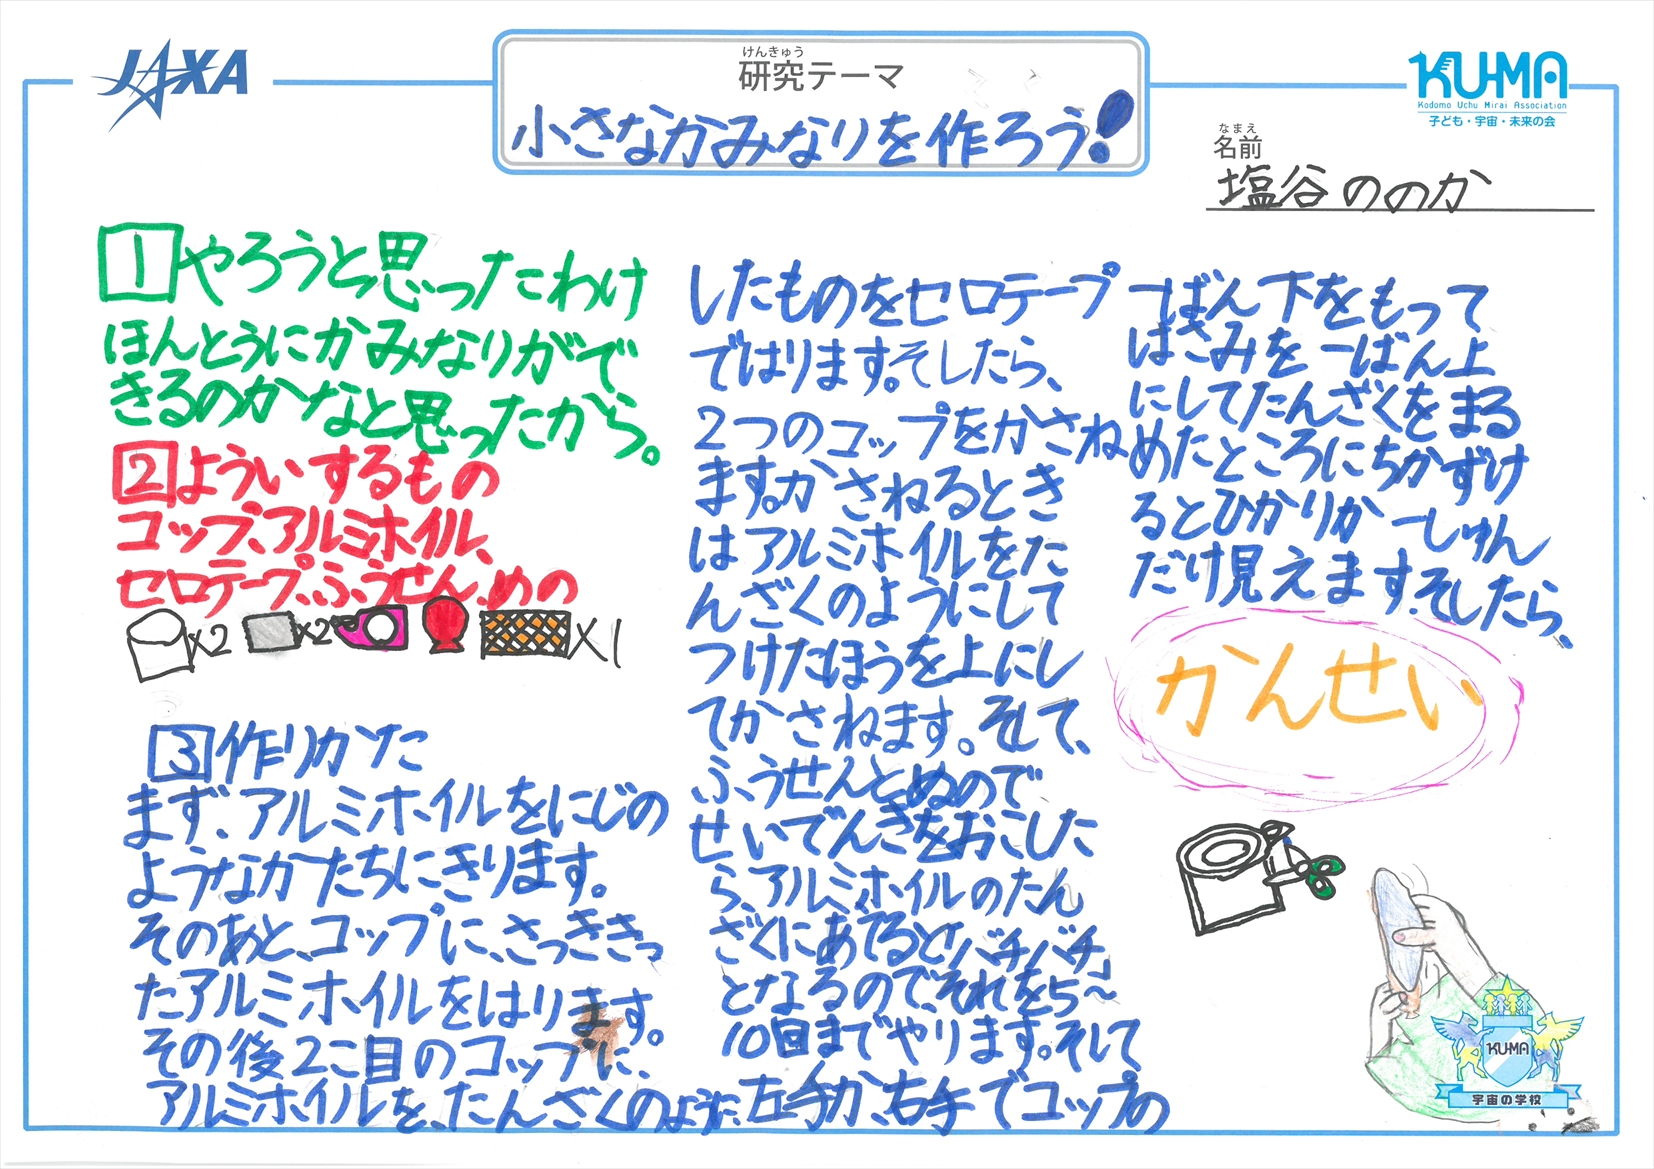 JAXA
けんきゅう
研究テーマ
小さなかみなりを作ろう!
KU-MA
Kodomo Uchu Mirai Association
子ども・宇宙・未来の会
なまえ
名前
塩谷ののか
1 やろうと思ったわけ
ほんとうにかみなりがで
きるのかなと思ったから。
2 よういするもの
コップ、アルミホイル、
セロテープ、ふうせん、めの
×2 ×2 ×1
3 作りかた
まず、アルミホイルをにじの
ようなかたちにきります。
そのあと、コップに、さっききっ
たアルミホイルをはります。
その後2こ目のコップに、
アルミホイルを、たんざくのように
したものをセロテープ
ではります。そしたら、
2つのコップをかさね
ます。かさねるとき
はアルミホイルをた
んざくのようにして
つけたほうを上にし
てかさねます。そして、
ふうせんとぬので
せいでんきをおこした
ら、アルミホイルのたん
ざくにあてると「バチバチ」
となるので、それを5〜
10回までやります。そして
左手か、右手でコップの
一ばん下をもって
はさみを一ばん上
にしてたんざくをまる
めたところにちかずけ
るとひかりか一しゅん
だけ見えます。そしたら、
かんせい
KU-MA
宇宙の学校